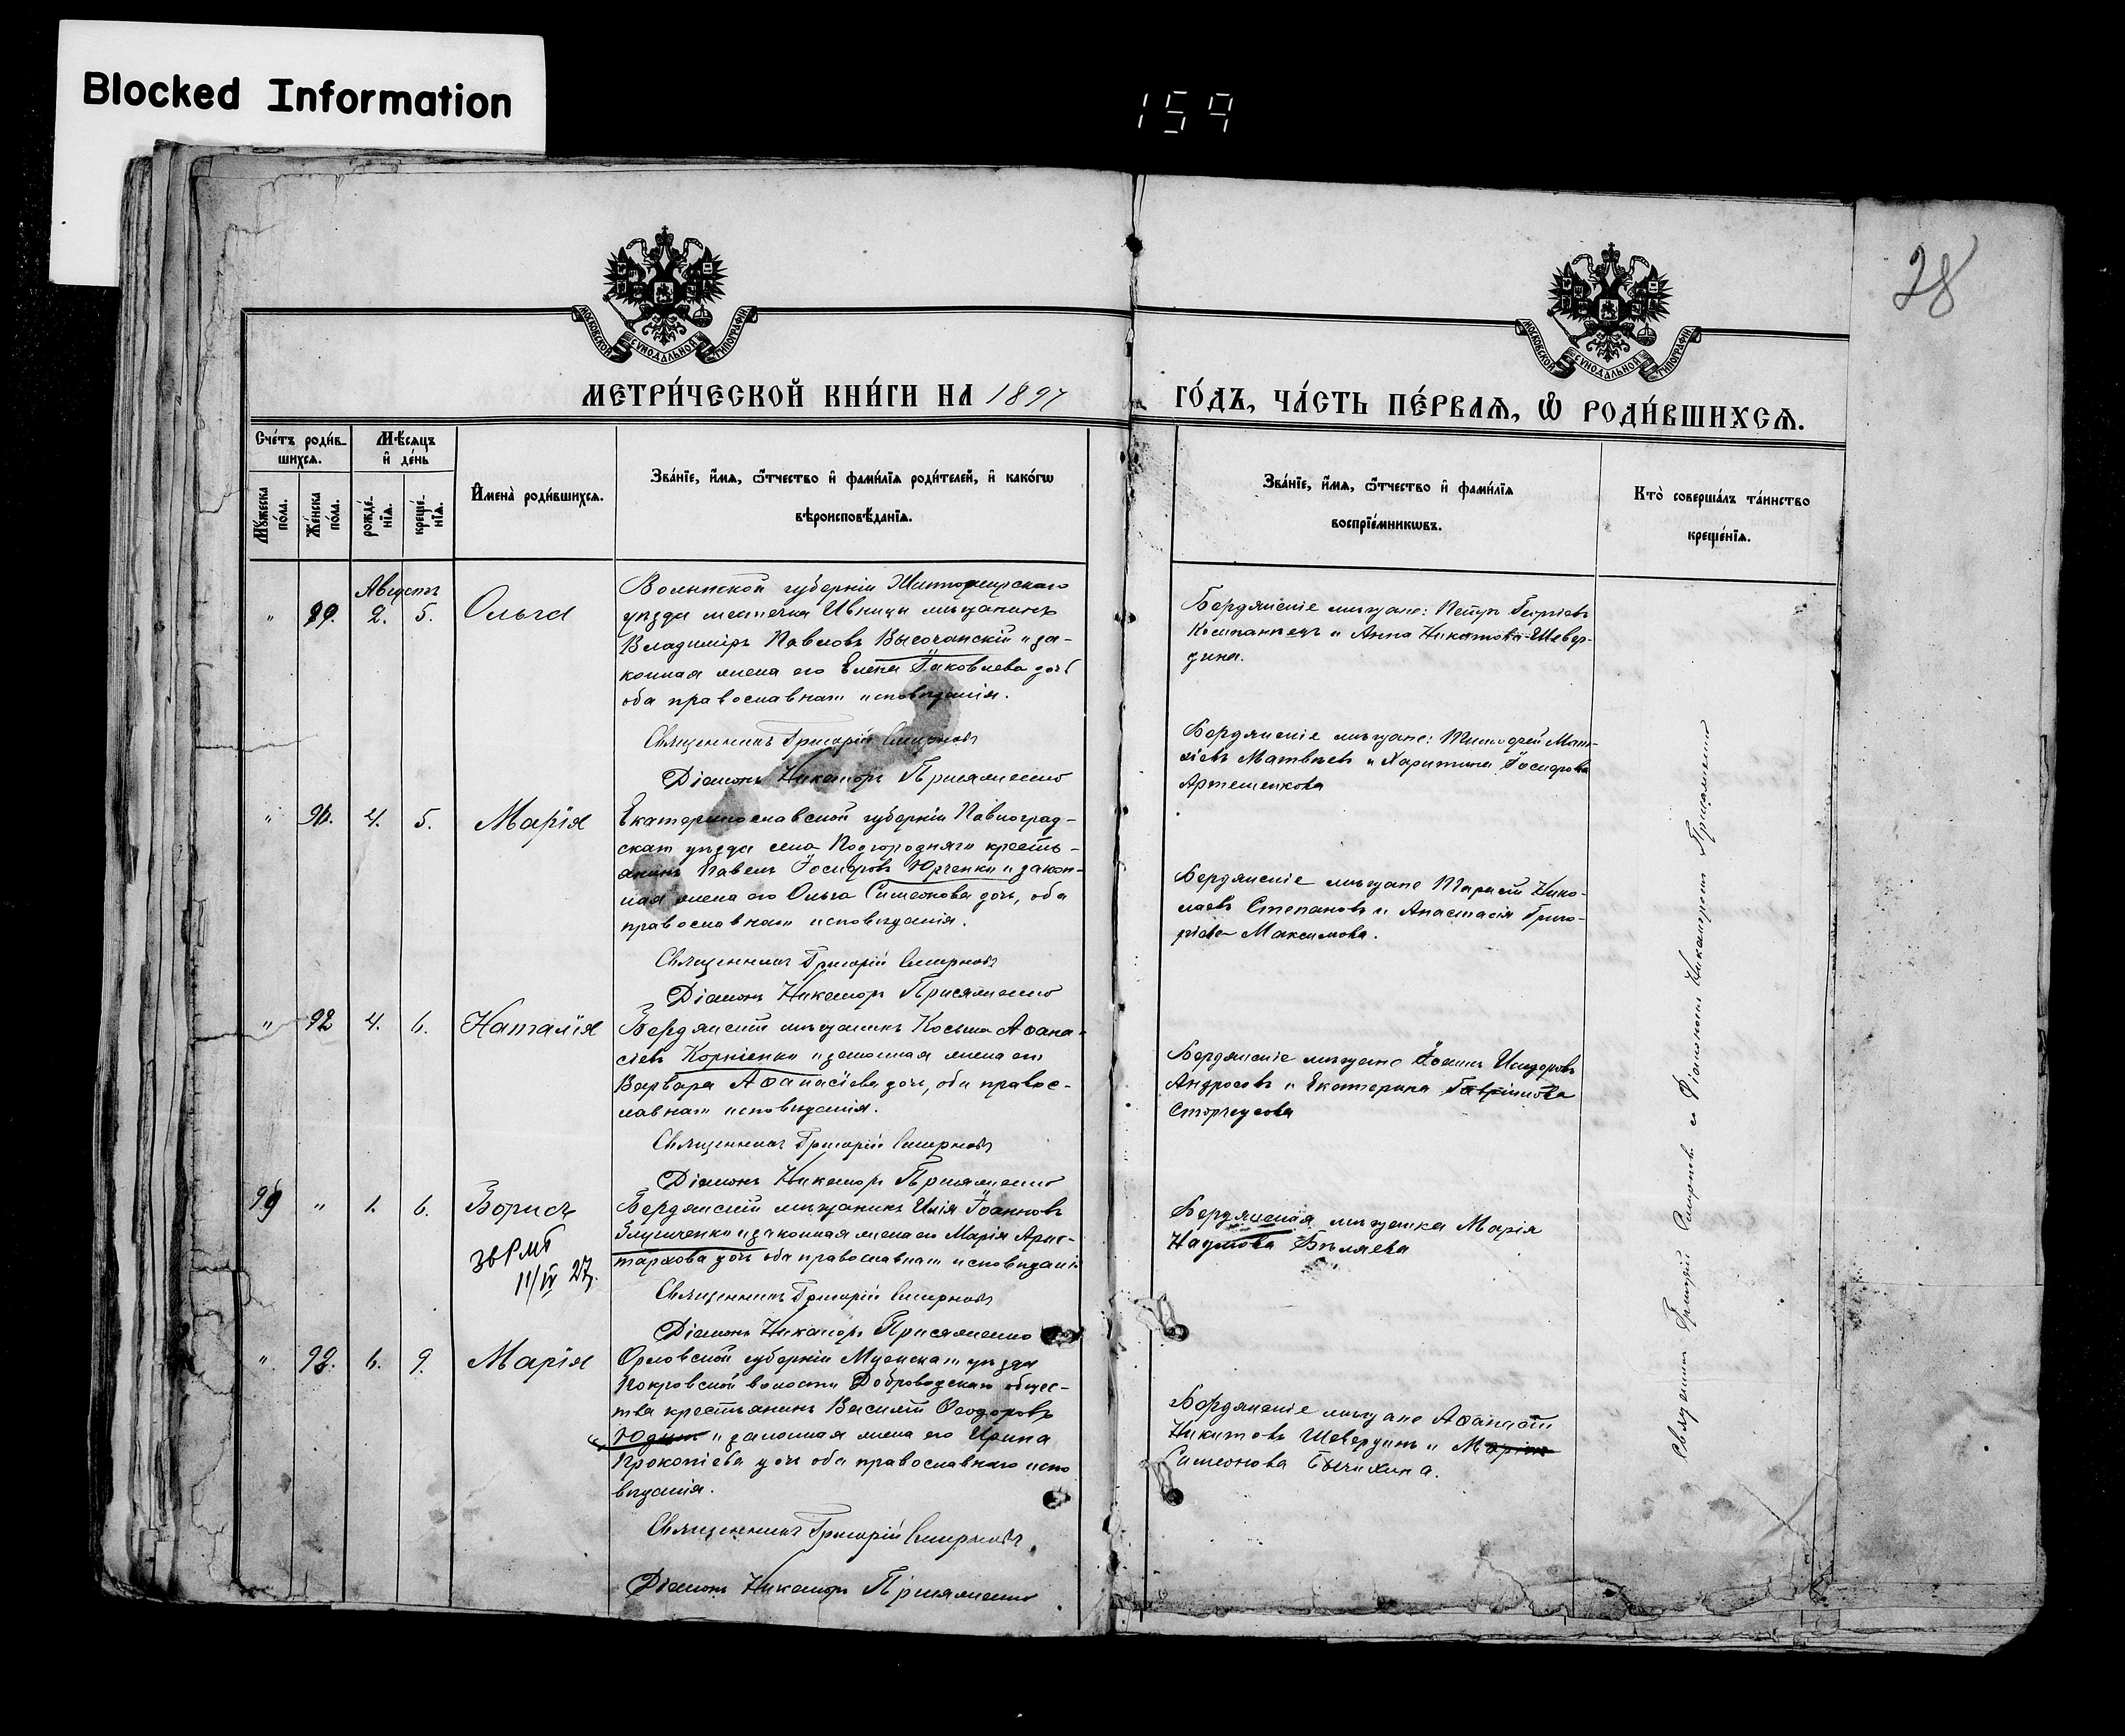 Blocked Information
159
28
МОСКОВСКОЙ СУНОДАЛЬНОЙ ТИПОГРАФІИ
МОСКОВСКОЙ СУНОДАЛЬНОЙ ТИПОГРАФІИ
МЕТРИ́ЧЕСКОЙ КНИ́ГИ НА 1897
ГО́ДЪ, ЧА́СТЬ ПЕ́РВАЯ, Ѿ РОДИ́ВШИХСЯ.
Сче́тъ роди́в-
шихся.
Мѣ́сяцъ
и҆ де́нь
Мꙋ́жеска
по́ла.
Же́нска
по́ла.
рожде́-
нїя.
креще́-
нїя.
И҆мена̀ роди́вшихся.
Зва́нїе, и҆́мя, ѻ҆́тчество и҆ фами́лїя роди́телей, и҆ како́гѡ
вѣроисповѣ́данїя.
Зва́нїе, и҆́мя, ѻ҆́тчество и҆ фами́лїя
воспрїе́мникѡвъ.
Кто̀ соверша́лъ та́инство
креще́нїя.
Августъ
" 2. 5. Ольга
Волынской губерніи Житомирскаго
уѣзда мѣстечка Ивницы мѣщанинъ
Владиміръ Павловъ Височанскій и за-
конная жена его Елена Іаковлева дочь
оба православнаго исповѣданія.
Священникъ Григорій Смирновъ
Діаконъ Никаноръ Присяженко
Бердянскіе мѣщане: Петръ Георгіевъ
и Анна Никитова Шевер-
дина.
" 4. 5. Марія
Екатеринославской губерніи Павлоград-
скаго уѣзда села Подгородняго кресть-
янинъ Павелъ Іосифовъ Юрченко и закон-
ная жена его Ольга Симеонова дочь, оба
православнаго исповѣданія.
Священникъ Григорій Смирновъ
Діаконъ Никаноръ Присяженко
Бердянскіе мѣщане: Тимофей
Матвѣевъ и Харитина Іосифова
Артеменкова
" 92 4. 6. Наталія
Бердянскій мѣщанинъ Косьма Аѳана-
сіевъ Корніенко и законная жена его
Варвара Аѳанасіева дочь, оба правос-
лавнаго исповѣданія.
Священникъ Григорій Смирновъ
Діаконъ Никаноръ Присяженко
Бердянскіе мѣщане Тарасій Нико-
лаевъ Степановъ и Анастасія Григо-
ріева Максимова.
99 " 1. 6. Борисъ
11/IV 27.
Бердянскій мѣщанинъ Илія Іоанновъ
и законная жена его Марія Арис-
тархова дочь оба православнаго исповѣданія
Священникъ Григорій Смирновъ
Діаконъ Никаноръ Присяженко
Бердянскіе мѣщане Іоаннъ Исидоровъ
Андросовъ и Екатерина Гавріилова
" 6. 9. Марія
Орловской губерніи Мценскаго уѣзда
Покровской волости Доброводскаго общес-
тва крестьянинъ Василій Ѳеодоровъ
Юдинъ и законная жена его Ирина
Прокопіева дочь оба православнаго испо
вѣданія.
Священникъ Григорій Смирновъ
Діаконъ Никаноръ Присяженко
Бердянская мѣщанка Марія
Наумова Бѣляева
Бердянскіе мѣщане Аѳанасій
Никитовъ Шевердинъ и Марія
Симеонова Бычихина.
Священникъ Григорій Смирновъ съ Діакономъ Никаноромъ Присяженко